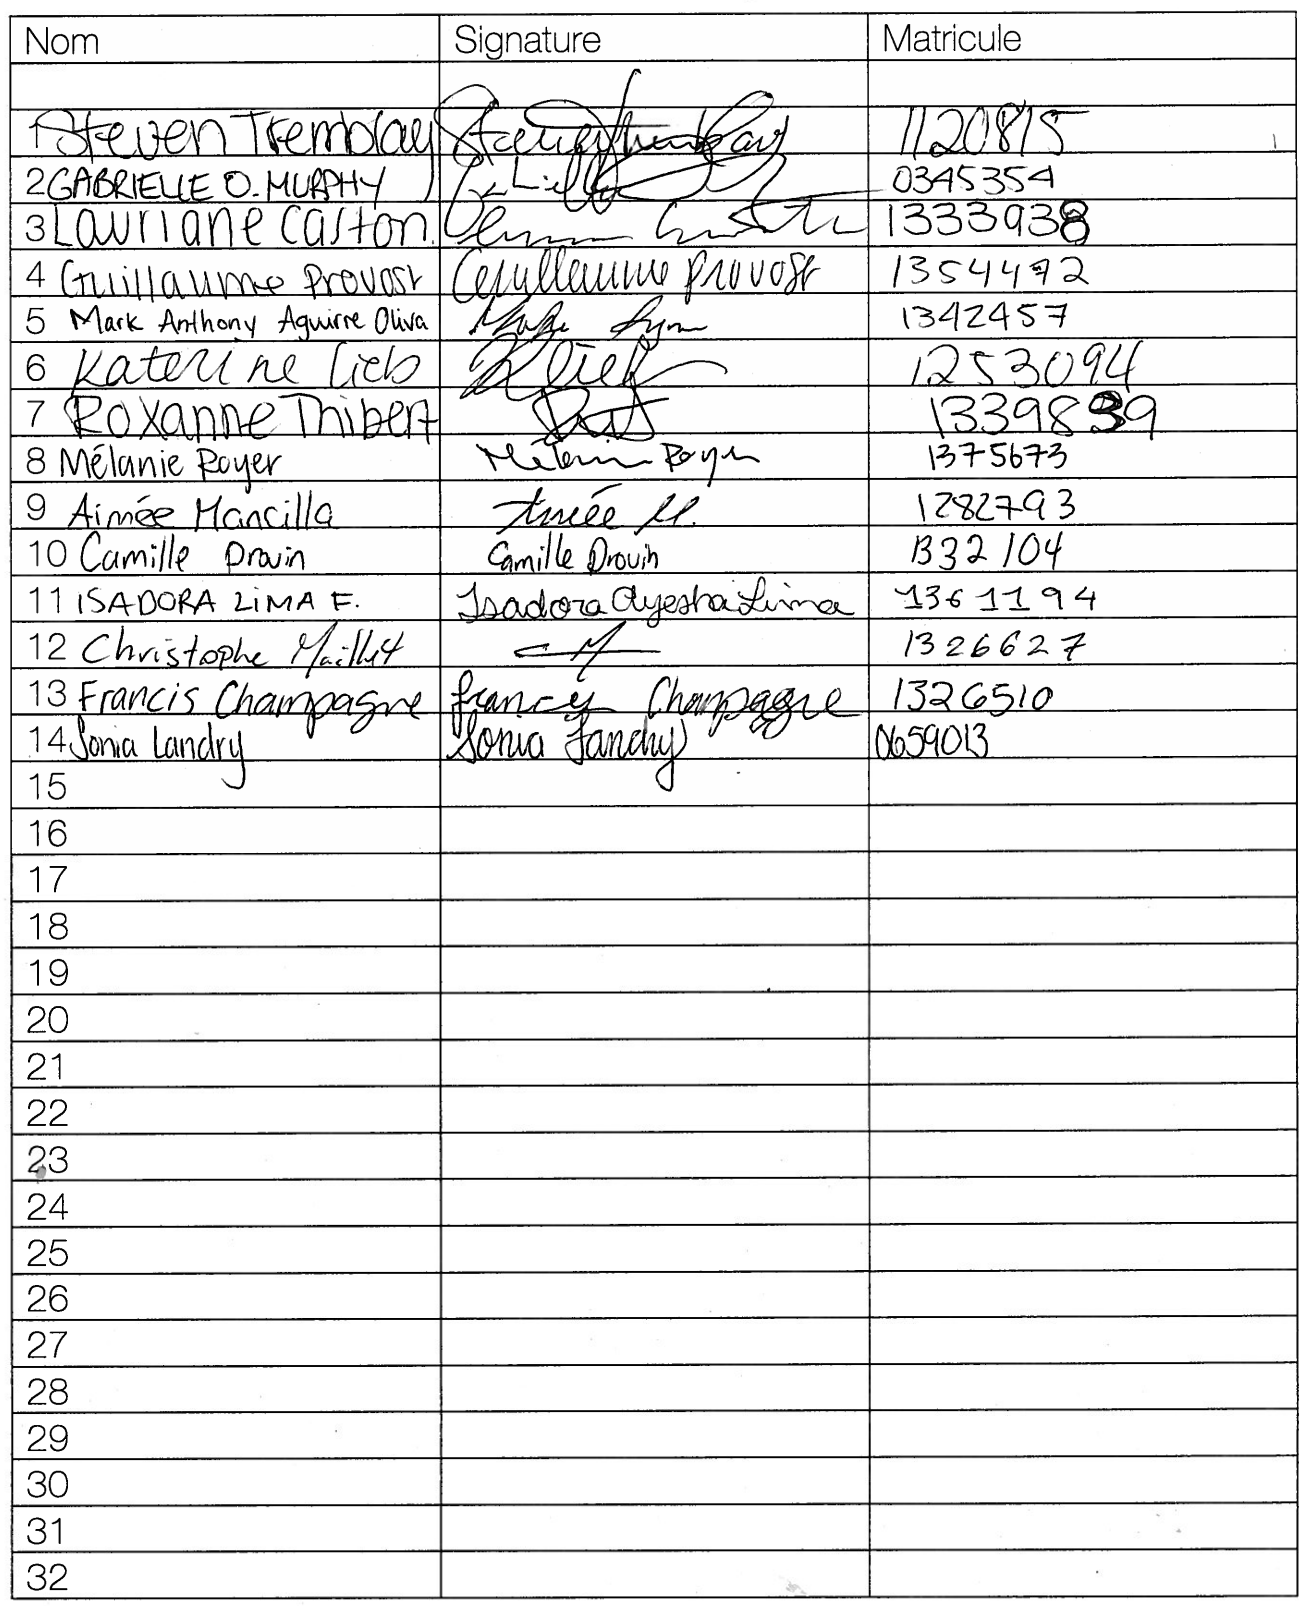 Nom Signature Matricule
1 Steven Tremblay Steven Tremblay 1120815
2 GABRIELLE O. MURPHY 0345354
3 Lauriane Caston 1333938
4 Guillaume Provost Guillaume Provost 1354472
5 Mark Anthony Aguirre Oliva 1342457
6 Katerine Lieb K Lieb 1253094
7 Roxanne Thibert 1339839
8 Mélanie Royer Mélanie Royer 1375673
9 Aimée Mancilla Aimée M. 1282793
10 Camille Drouin Camille Drouin 1332104
11 ISADORA LIMA F. Isadora Ayesha Lima 1361194
12 Christophe Maillet 1326627
13 Francis Champagne Francis Champagne 1326510
14 Sonia Landry Sonia Landry 0659013
15
16
17
18
19
20
21
22
23
24
25
26
27
28
29
30
31
32